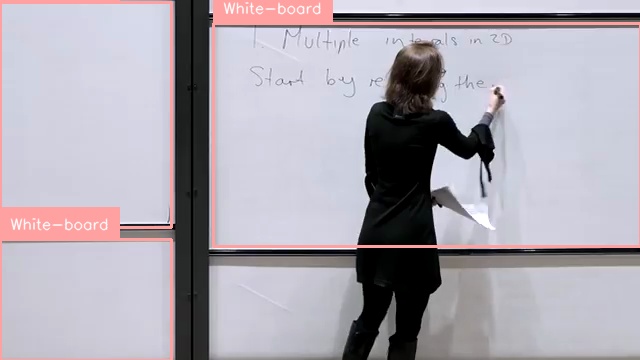 White-board
1. Multiple integrals in 2D
Start by the
White-board